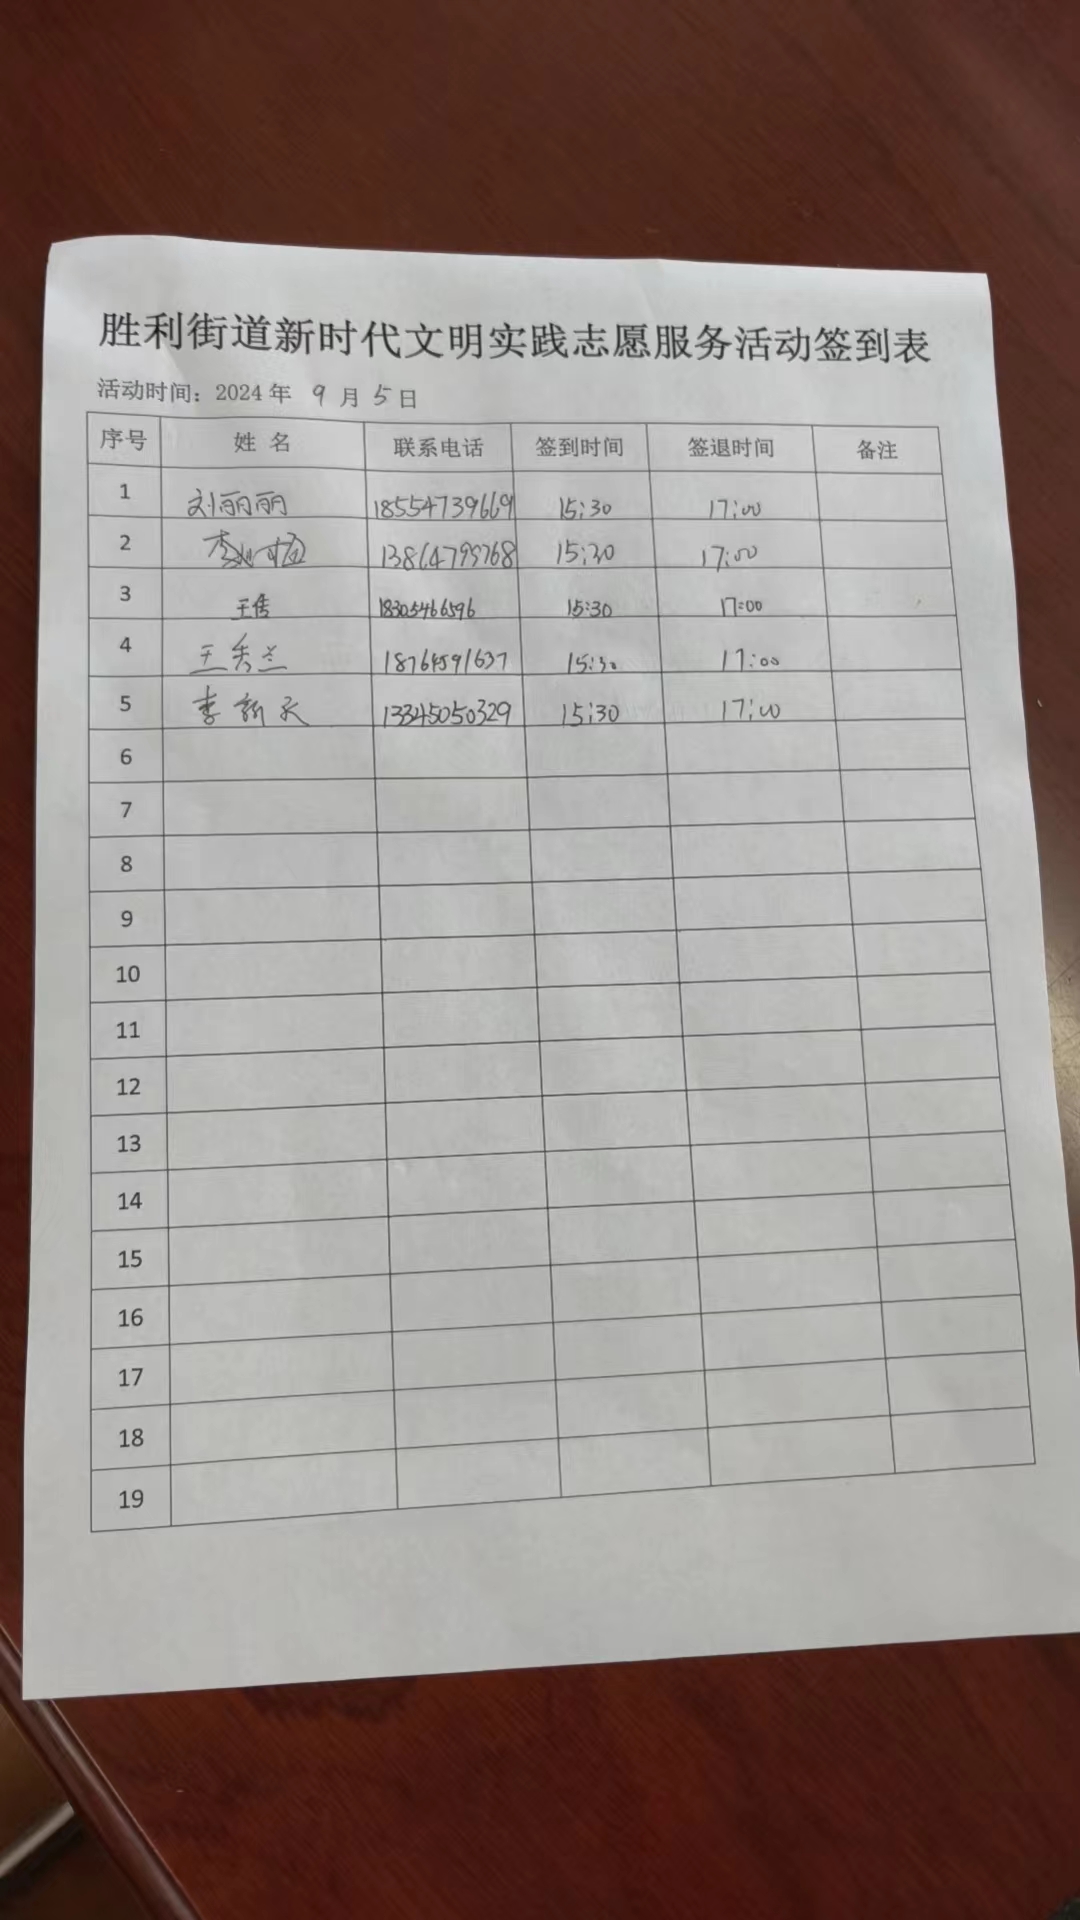 胜利街道新时代文明实践志愿服务活动签到表
活动时间：2024年 9月 5日
序号 姓 名 联系电话 签到时间 签退时间 备注
1 刘丽丽 18554739669 15:30 17:00
2 13864795768 15:30 17:00
3 王隽 18305466596 15:30 17:00
4 王秀兰 18764591637 15:30 17:00
5 李新天 13345050329 15:30 17:00
6
7
8
9
10
11
12
13
14
15
16
17
18
19